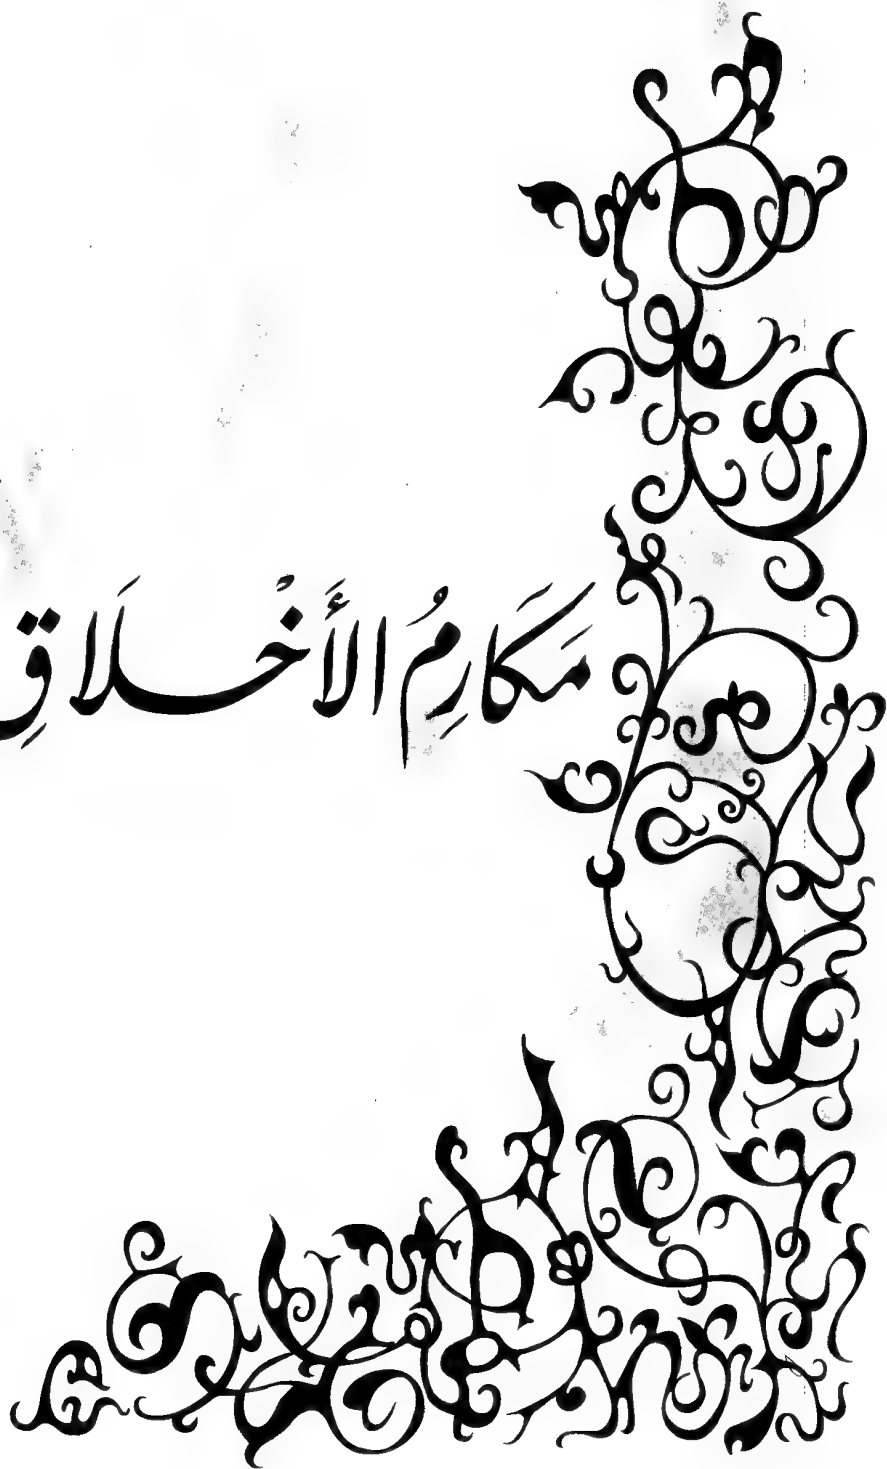 مَكَارِمُ الأَخْلَاقِ